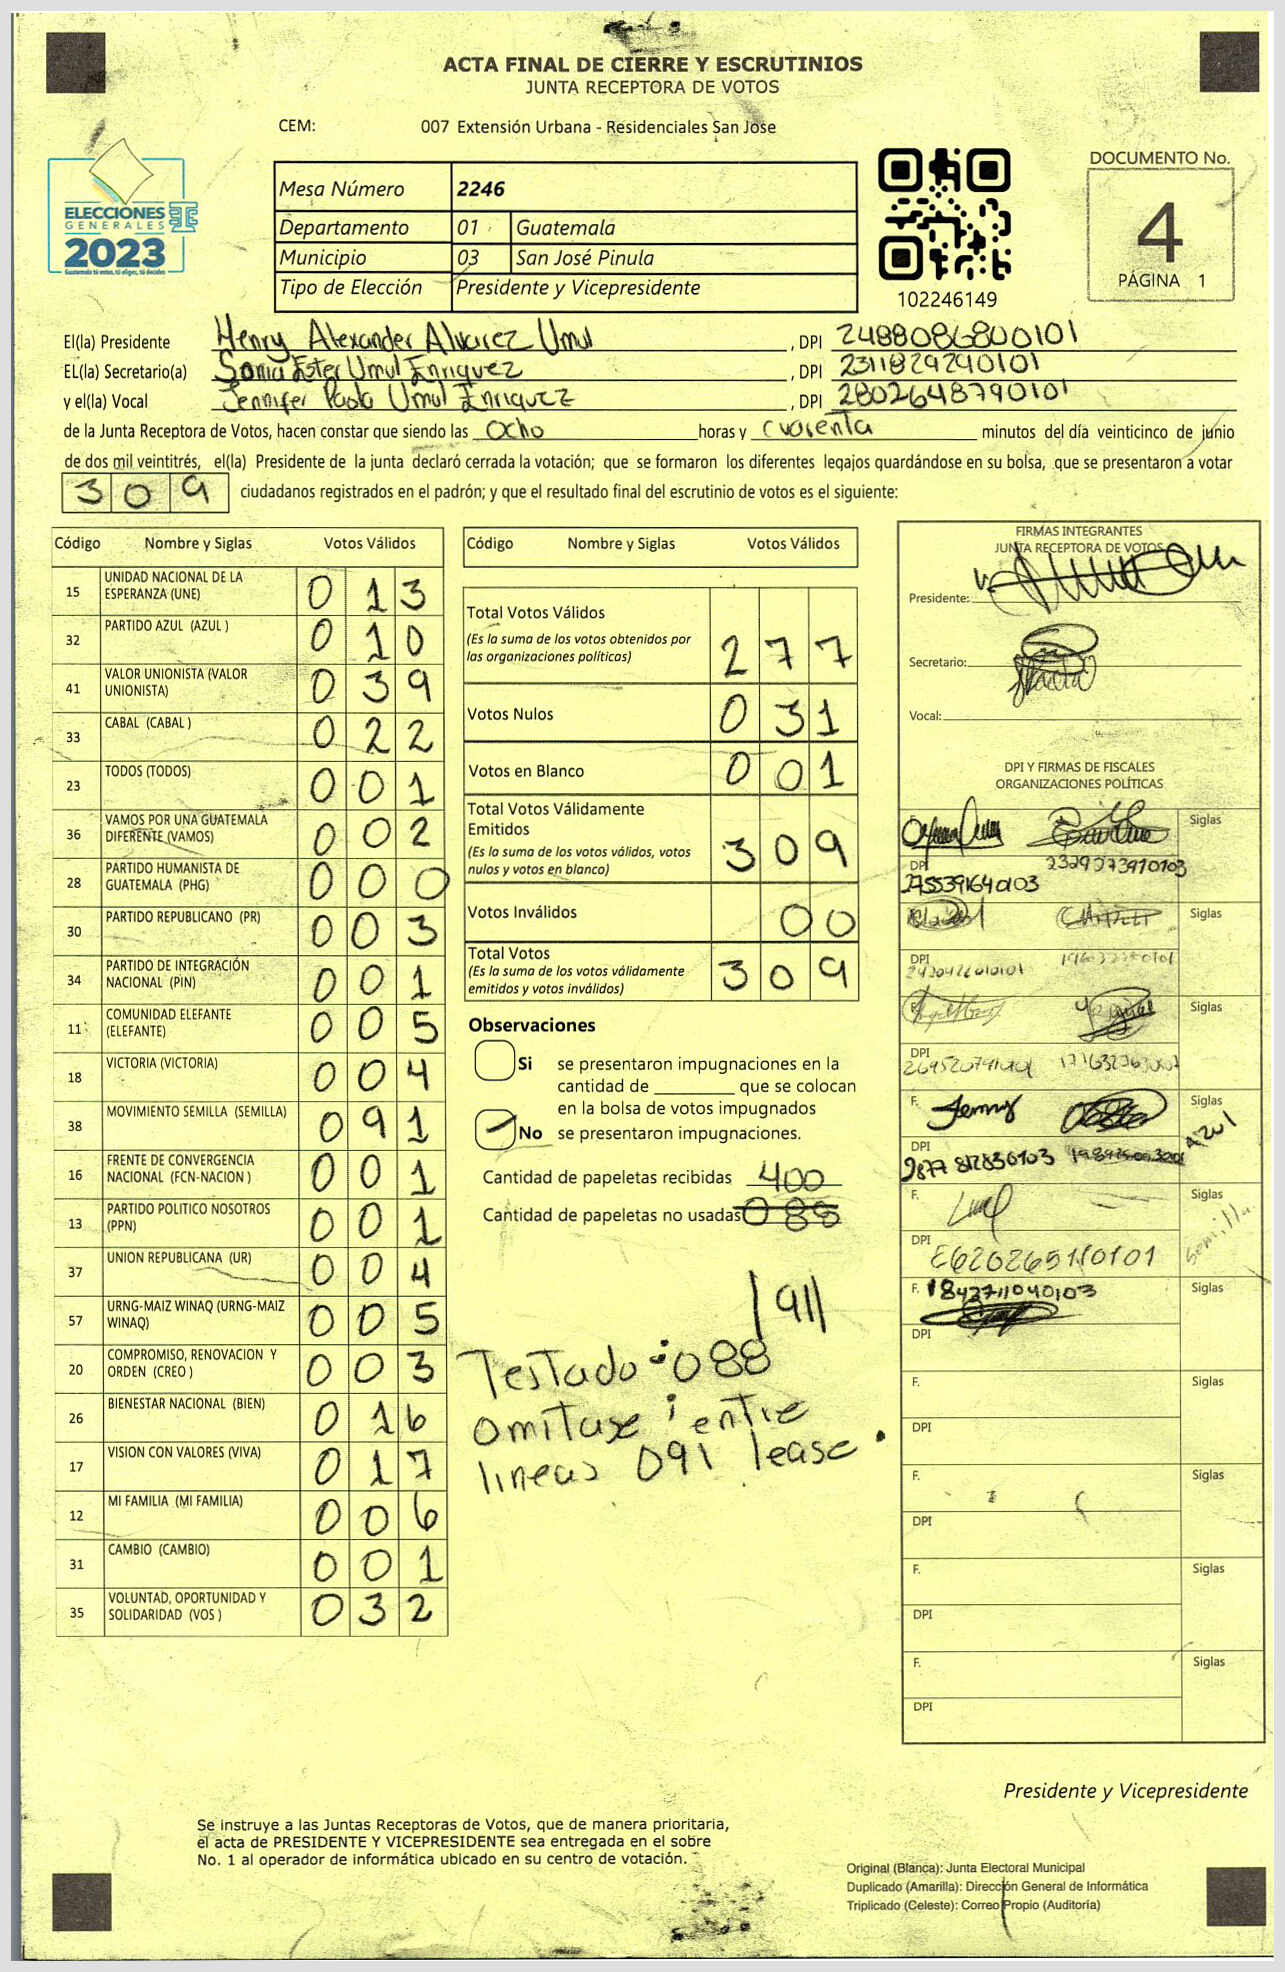 ACTA FINAL DE CIERRE Y ESCRUTINIOS
JUNTA RECEPTORA DE VOTOS
CEM: 007 Extensión Urbana - Residenciales San Jose
ELECCIONES
GENERALES
2023
Guatemala tú votas, tú eliges, tú decides
Mesa Número 2246
Departamento 01 Guatemala
Municipio 03 San José Pinula
Tipo de Elección Presidente y Vicepresidente
102246149
DOCUMENTO No.
4
PÁGINA 1
El(la) Presidente Henry Alexander Alvarez Umul , DPI 2488086800101
EL(la) Secretario(a) Sonia Ester Umul Enriquez , DPI 2311829290101
y el(la) Vocal Jennifer Paola Umul Enriquez , DPI 2802648790101
de la Junta Receptora de Votos, hacen constar que siendo las ocho horas y cuarenta minutos del día veinticinco de junio
de dos mil veintitrés, el(la) Presidente de la junta declaró cerrada la votación; que se formaron los diferentes legajos guardándose en su bolsa, que se presentaron a votar
309 ciudadanos registrados en el padrón; y que el resultado final del escrutinio de votos es el siguiente:
Código Nombre y Siglas Votos Válidos
15 UNIDAD NACIONAL DE LA ESPERANZA (UNE) 013
32 PARTIDO AZUL (AZUL ) 010
41 VALOR UNIONISTA (VALOR UNIONISTA) 039
33 CABAL (CABAL ) 022
23 TODOS (TODOS) 001
36 VAMOS POR UNA GUATEMALA DIFERENTE (VAMOS) 002
28 PARTIDO HUMANISTA DE GUATEMALA (PHG) 000
30 PARTIDO REPUBLICANO (PR) 003
34 PARTIDO DE INTEGRACIÓN NACIONAL (PIN) 001
11 COMUNIDAD ELEFANTE (ELEFANTE) 005
18 VICTORIA (VICTORIA) 004
38 MOVIMIENTO SEMILLA (SEMILLA) 091
16 FRENTE DE CONVERGENCIA NACIONAL (FCN-NACION ) 001
13 PARTIDO POLITICO NOSOTROS (PPN) 001
37 UNION REPUBLICANA (UR) 004
57 URNG-MAIZ WINAQ (URNG-MAIZ WINAQ) 005
20 COMPROMISO, RENOVACION Y ORDEN (CREO ) 003
26 BIENESTAR NACIONAL (BIEN) 016
17 VISION CON VALORES (VIVA) 017
12 MI FAMILIA (MI FAMILIA) 006
31 CAMBIO (CAMBIO) 001
35 VOLUNTAD, OPORTUNIDAD Y SOLIDARIDAD (VOS ) 032
Código Nombre y Siglas Votos Válidos
Total Votos Válidos 277
(Es la suma de los votos obtenidos por
las organizaciones políticas)
Votos Nulos 031
Votos en Blanco 001
Total Votos Válidamente
Emitidos 309
(Es la suma de los votos válidos, votos
nulos y votos en blanco)
Votos Inválidos 00
Total Votos 309
(Es la suma de los votos válidamente
emitidos y votos inválidos)
Observaciones
Si se presentaron impugnaciones en la
cantidad de ________ que se colocan
en la bolsa de votos impugnados
No se presentaron impugnaciones.
Cantidad de papeletas recibidas 400
Cantidad de papeletas no usadas 088
1911
Testado: 088
omitase; entre
lineas 091 lease.
FIRMAS INTEGRANTES
JUNTA RECEPTORA DE VOTOS
Presidente:
Secretario:
Vocal:
DPI Y FIRMAS DE FISCALES
ORGANIZACIONES POLÍTICAS
Siglas
DPI 2755391640103 2329073970103
Siglas
DPI
F. Siglas
DPI
F. Jenny Siglas
DPI 2877812830103
Azul
F. Siglas
DPI E620265110101
semilla
F. 1842711040103 Siglas
DPI
F. Siglas
DPI
F. Siglas
DPI
F. Siglas
DPI
F. Siglas
DPI
Presidente y Vicepresidente
Se instruye a las Juntas Receptoras de Votos, que de manera prioritaria,
el acta de PRESIDENTE Y VICEPRESIDENTE sea entregada en el sobre
No. 1 al operador de informática ubicado en su centro de votación.
Original (Blanca): Junta Electoral Municipal
Duplicado (Amarilla): Dirección General de Informática
Triplicado (Celeste): Correo Propio (Auditoría)